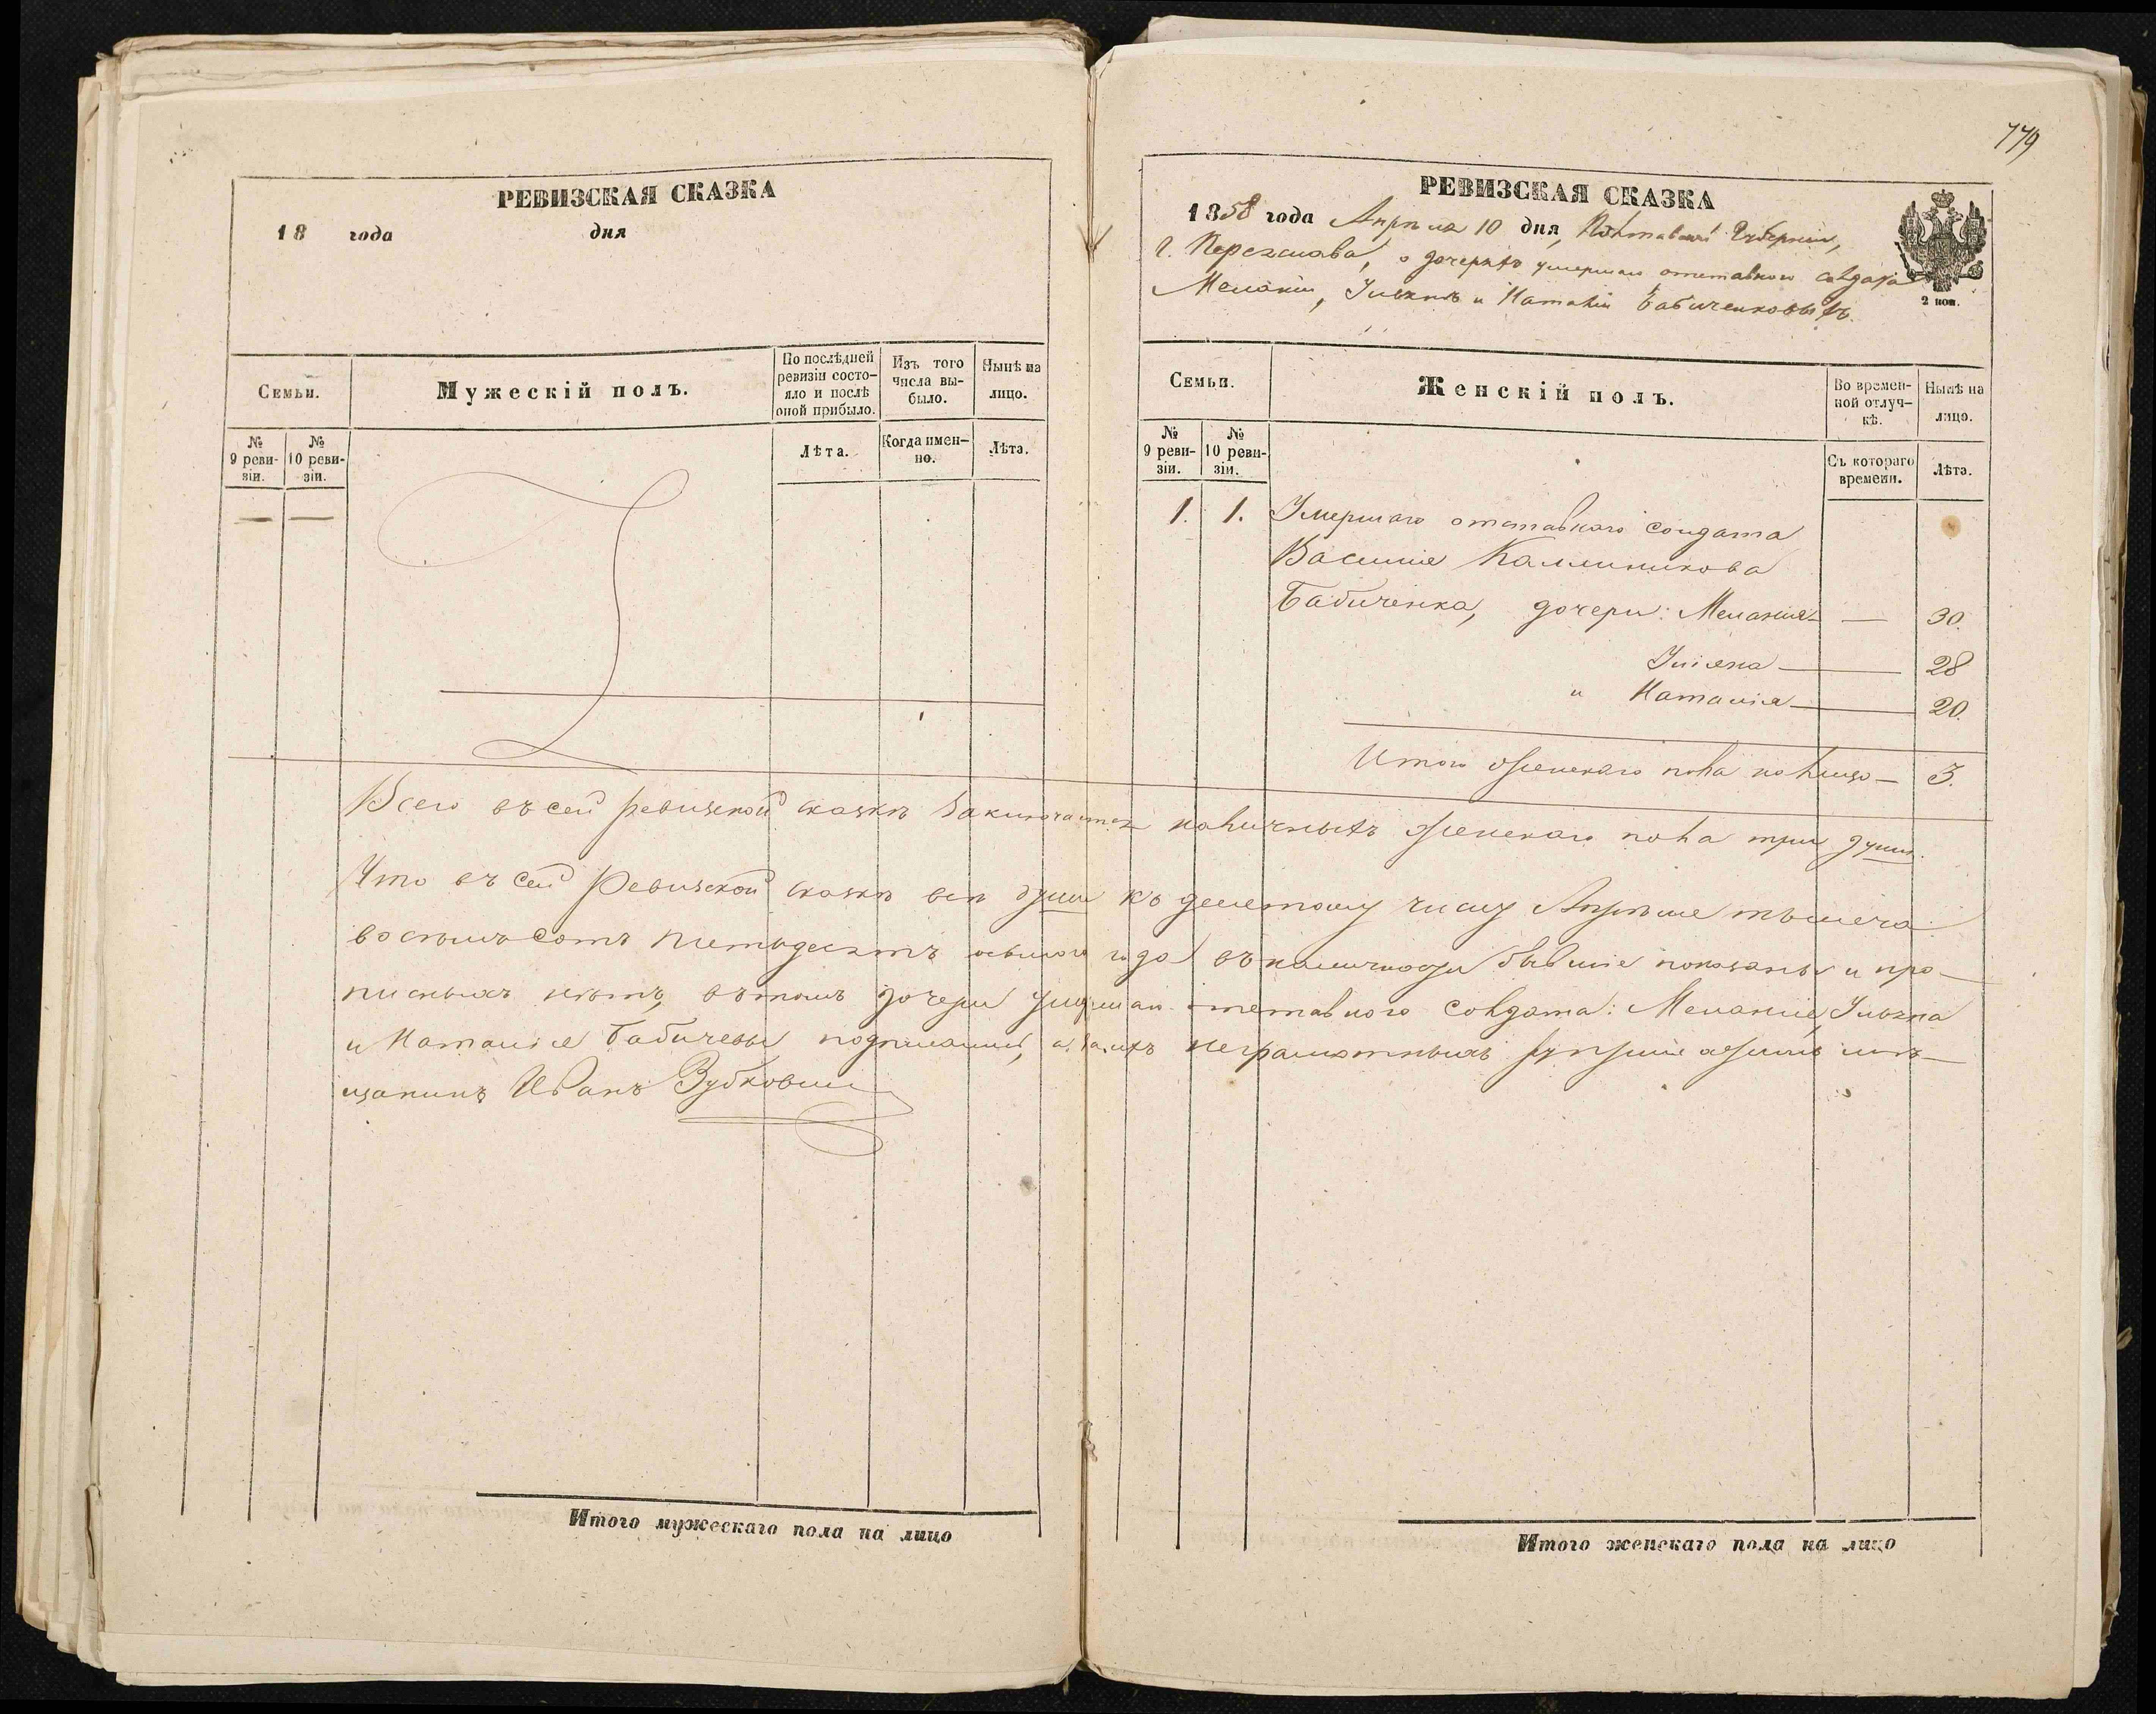 РЕВИЗСКАЯ СКАЗКА
18 года дня
Семьи.
Мужескій полъ.
По послѣдней ревизіи состо-яло и послѣ оной прибыло.
Изъ того числа вы-было.
Нынѣ на лицо.
№ 9 реви-зіи.
№ 10 реви-зіи.
Лѣта.
Когда имен-но.
Лѣта.
— —
779
РЕВИЗСКАЯ СКАЗКА
1858 года Апрѣля 10 дня, Полтавской Губерніи,
г. Переяслава, о дочеряхъ умершаго отставного солдата
Меланіи, Ульянѣ и Наталіи Бабиченковыхъ.
2 коп.
Семьи.
Женскій полъ.
Во времен-ной отлуч-кѣ.
Нынѣ на лицо.
№ 9 реви-зіи.
№ 10 реви-зіи.
Съ котораго времени.
Лѣта.
1. 1. Умершаго отставнаго солдата
Василія Калиникова
Бабиченка, дочери: Меланія — 30.
Уліяна — 28
и Наталія — 20.
Итого женскаго пола на лицо — 3.
Всего въ сей ревизской сказкѣ заключается наличныхъ женскаго пола три души.
Что въ сей Ревизской сказкѣ всѣ души къ десятому числу Апрѣля тысяча
восьмъсотъ пятьдесятъ осьмого года въ наличности бывшіе показаны и про-
писныхъ нѣтъ, въ томъ дочери умершаго отставного солдата: Меланія, Ульяна
и Наталія Бабичевы подписались, а за ихъ неграмотныхъ мѣ-
щанинъ Иванъ Зубковскій
Итого мужескаго пола на лицо
Итого женскаго пола на лицо